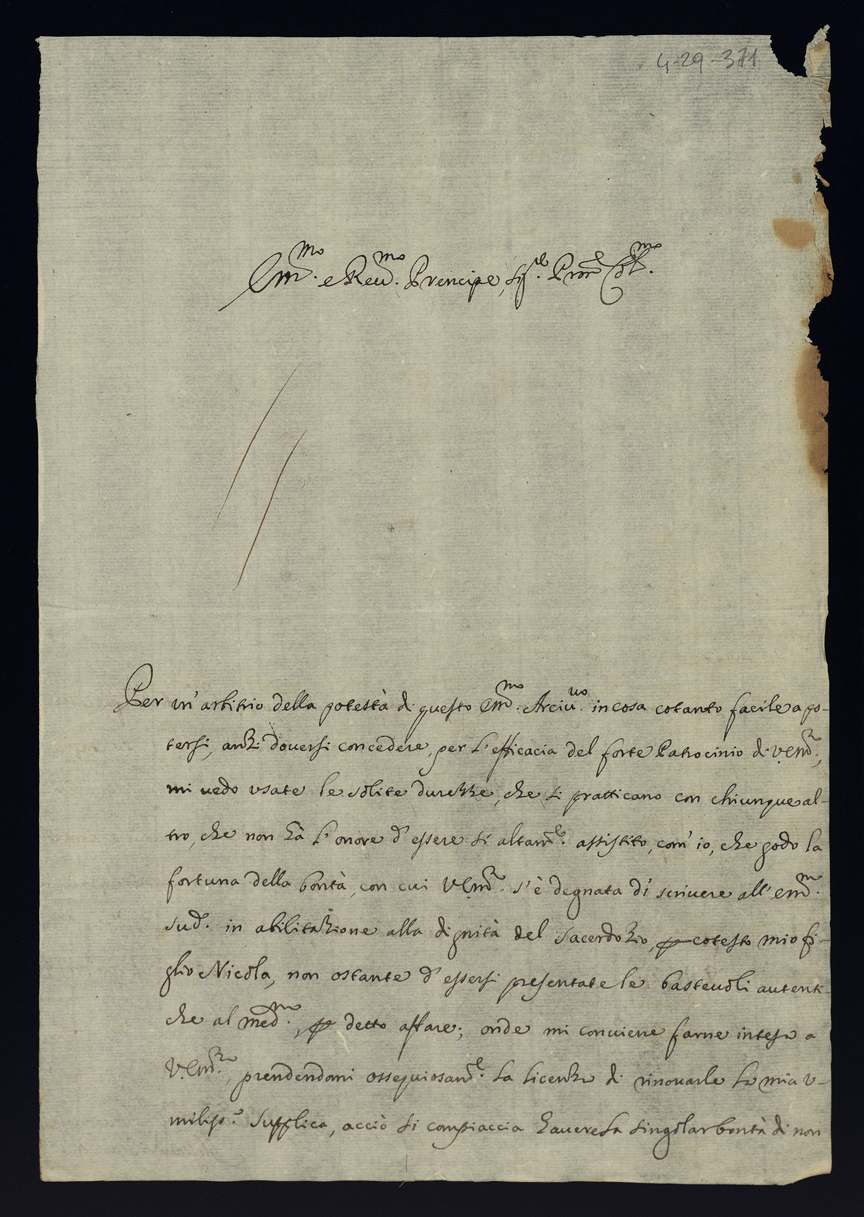 4-29-371
Em.mo e Reu.mo Prencipe, Sig.re Pron.e Col.mo
Per un' arbitrio della potestà di questo Em.mo Arciu.uo in cosa cotanto facile a po-
tersi, anzi douersi concedere, per l'efficacia del forte Patrocinio di V.Em.za,
mi uedo usate le solite durezze, che si pratticano con chiunque al-
tro, che non hà l'onore d'essere sì altam.te assistito, com' io, che godo la
fortuna della bontà, con cui V.Em.za s'è degnata di scriuere all'Em.mo
Sud.o in abilitazione alla dignità del Sacerdozio, p cotesto mio fi-
glio Nicola, non ostante d'essersi presentate le basteuoli autenti-
che al med.mo, p detto affare; onde mi conuiene farne intesa a
V.Em.za, prendendomi ossequiosam.te la licenza di rinouarle la mia u-
miliss.a supplica, acciò si compiaccia hauere la singolar bontà di non